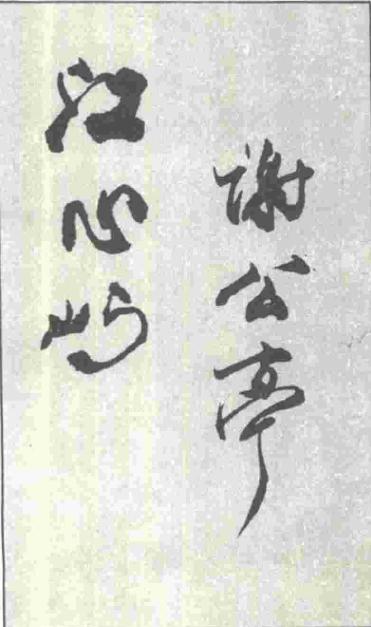 謝公亭
江心屿